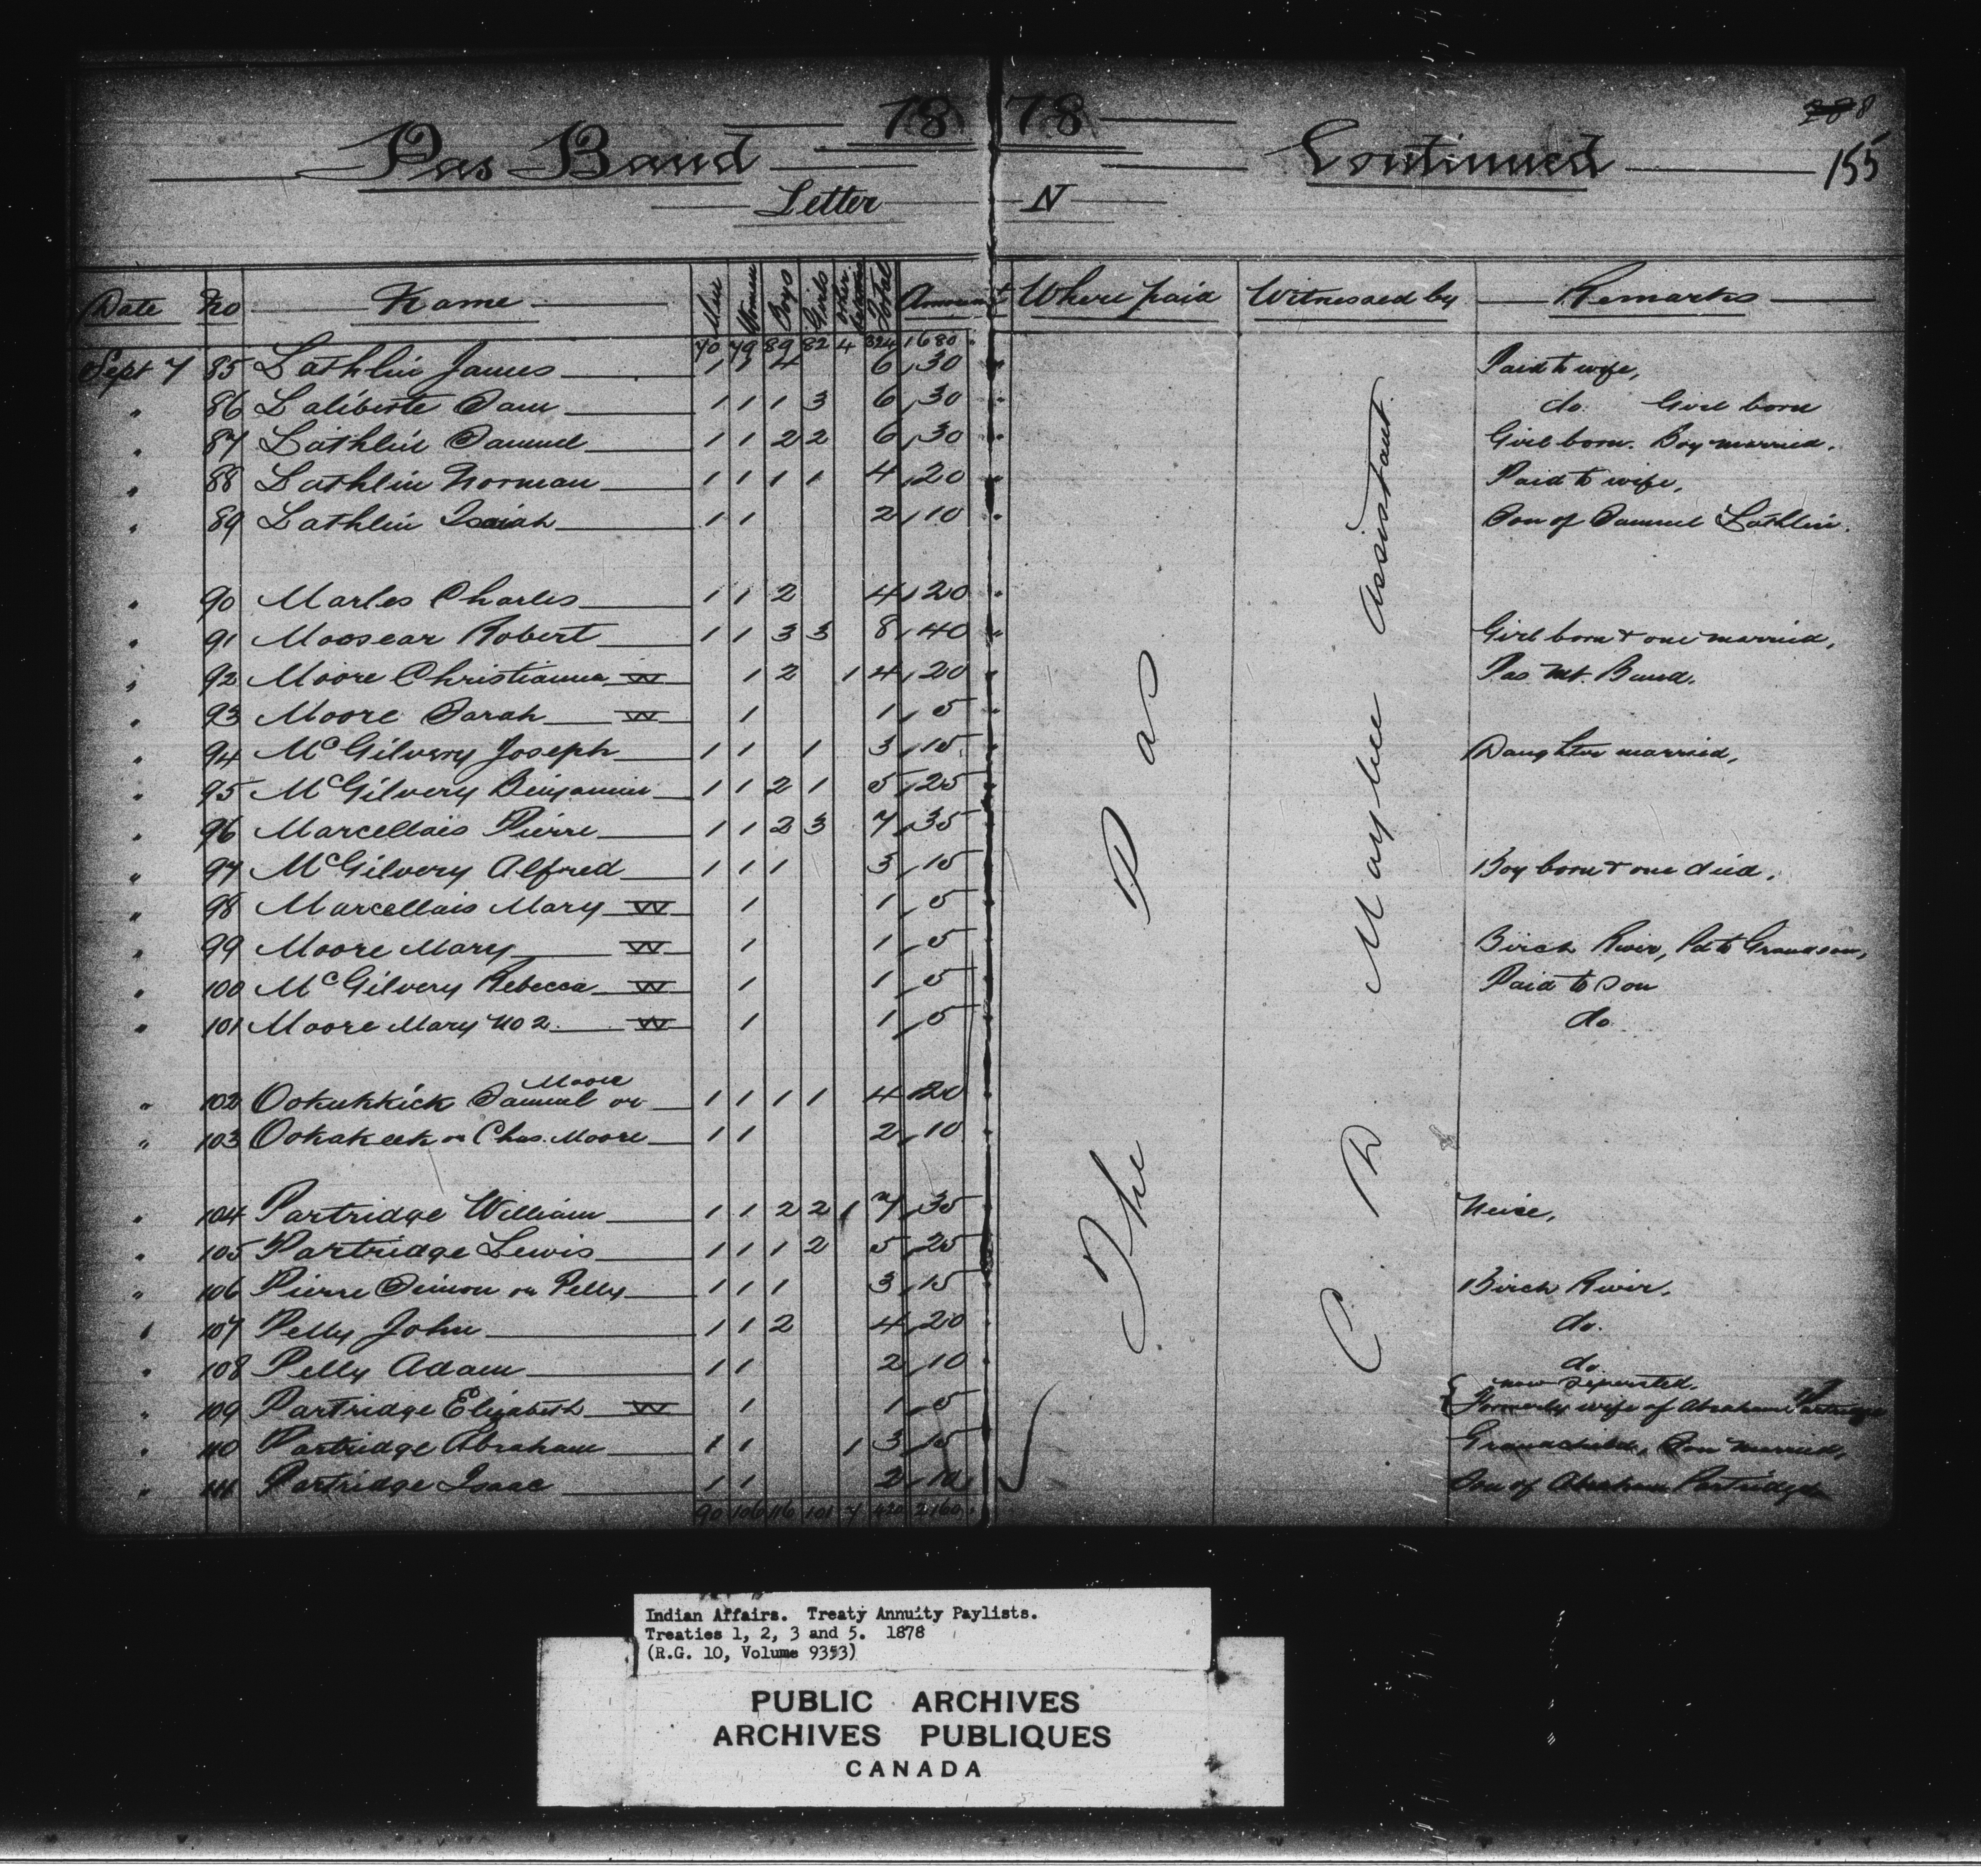 18 78
288
Pas Band Continued 155
Letter N
Date No Name Men Women Boys Girls Other Relatives Total Amount Where paid Witnessed by Remarks
70 79 89 82 4 324 1680
Sept 7 85 Lathlin James 1 1 4 6 30 Paid to wife,
" 86 Laliberte Sam 1 1 1 3 6 30 do. Girl born
" 87 Lathlin Samuel 1 1 2 2 6 30 Girl born. Boy married.
" 88 Lathlin Norman 1 1 1 1 4 20 Paid to wife,
" 89 Lathlin Isaiah 1 1 2 10 Son of Samuel Lathlin.
" 90 Marles Charles 1 1 2 4 20
" 91 Moosear Robert 1 1 3 3 8 40 Girl born & one married,
" 92 Moore Christianna W 1 2 1 4 20 Pas Mt. Band.
" 93 Moore Sarah W 1 1 5
" 94 McGilvery Joseph 1 1 1 3 15 Daughter married,
" 95 McGilvery Benjamin 1 1 2 1 5 25
" 96 Marcellais Pierre 1 1 2 3 7 35
" 97 McGilvery Alfred 1 1 1 3 15 Boy born & one died.
" 98 Marcellais Mary W 1 1 5
" 99 Moore Mary W 1 1 5 Birch River, Pd to Grandson,
" 100 McGilvery Rebecca W 1 1 5 Paid to son
" 101 Moore Mary No 2 W 1 1 5 do.
Moore
" 102 Ookukkick Samuel or 1 1 1 1 4 20
" 103 Ookakeek or Chas. Moore 1 1 2 10
" 104 Partridge William 1 1 2 2 1 7 35 Neice,
" 105 Partridge Lewis 1 1 1 2 5 25
" 106 Pierre Simon or Pelly 1 1 1 3 15 Birch River.
" 107 Pelly John 1 1 2 4 20 do.
" 108 Pelly Adam 1 1 2 10 do.
now seperated.
" 109 Partridge Elizabeth W 1 1 5 Formerly wife of Abraham Partridge
" 110 Partridge Abraham 1 1 1 3 15 Grandchild, Son married,
" 111 Partridge Isaac 1 1 2 10 Son of Abraham Partridge
90 106 116 101 7 420 2160
The Pas
C. D. Maybee Assistant
Indian Affairs. Treaty Annuity Paylists.
Treaties 1, 2, 3 and 5. 1878
(R.G. 10, Volume 9353)
PUBLIC ARCHIVES
ARCHIVES PUBLIQUES
CANADA